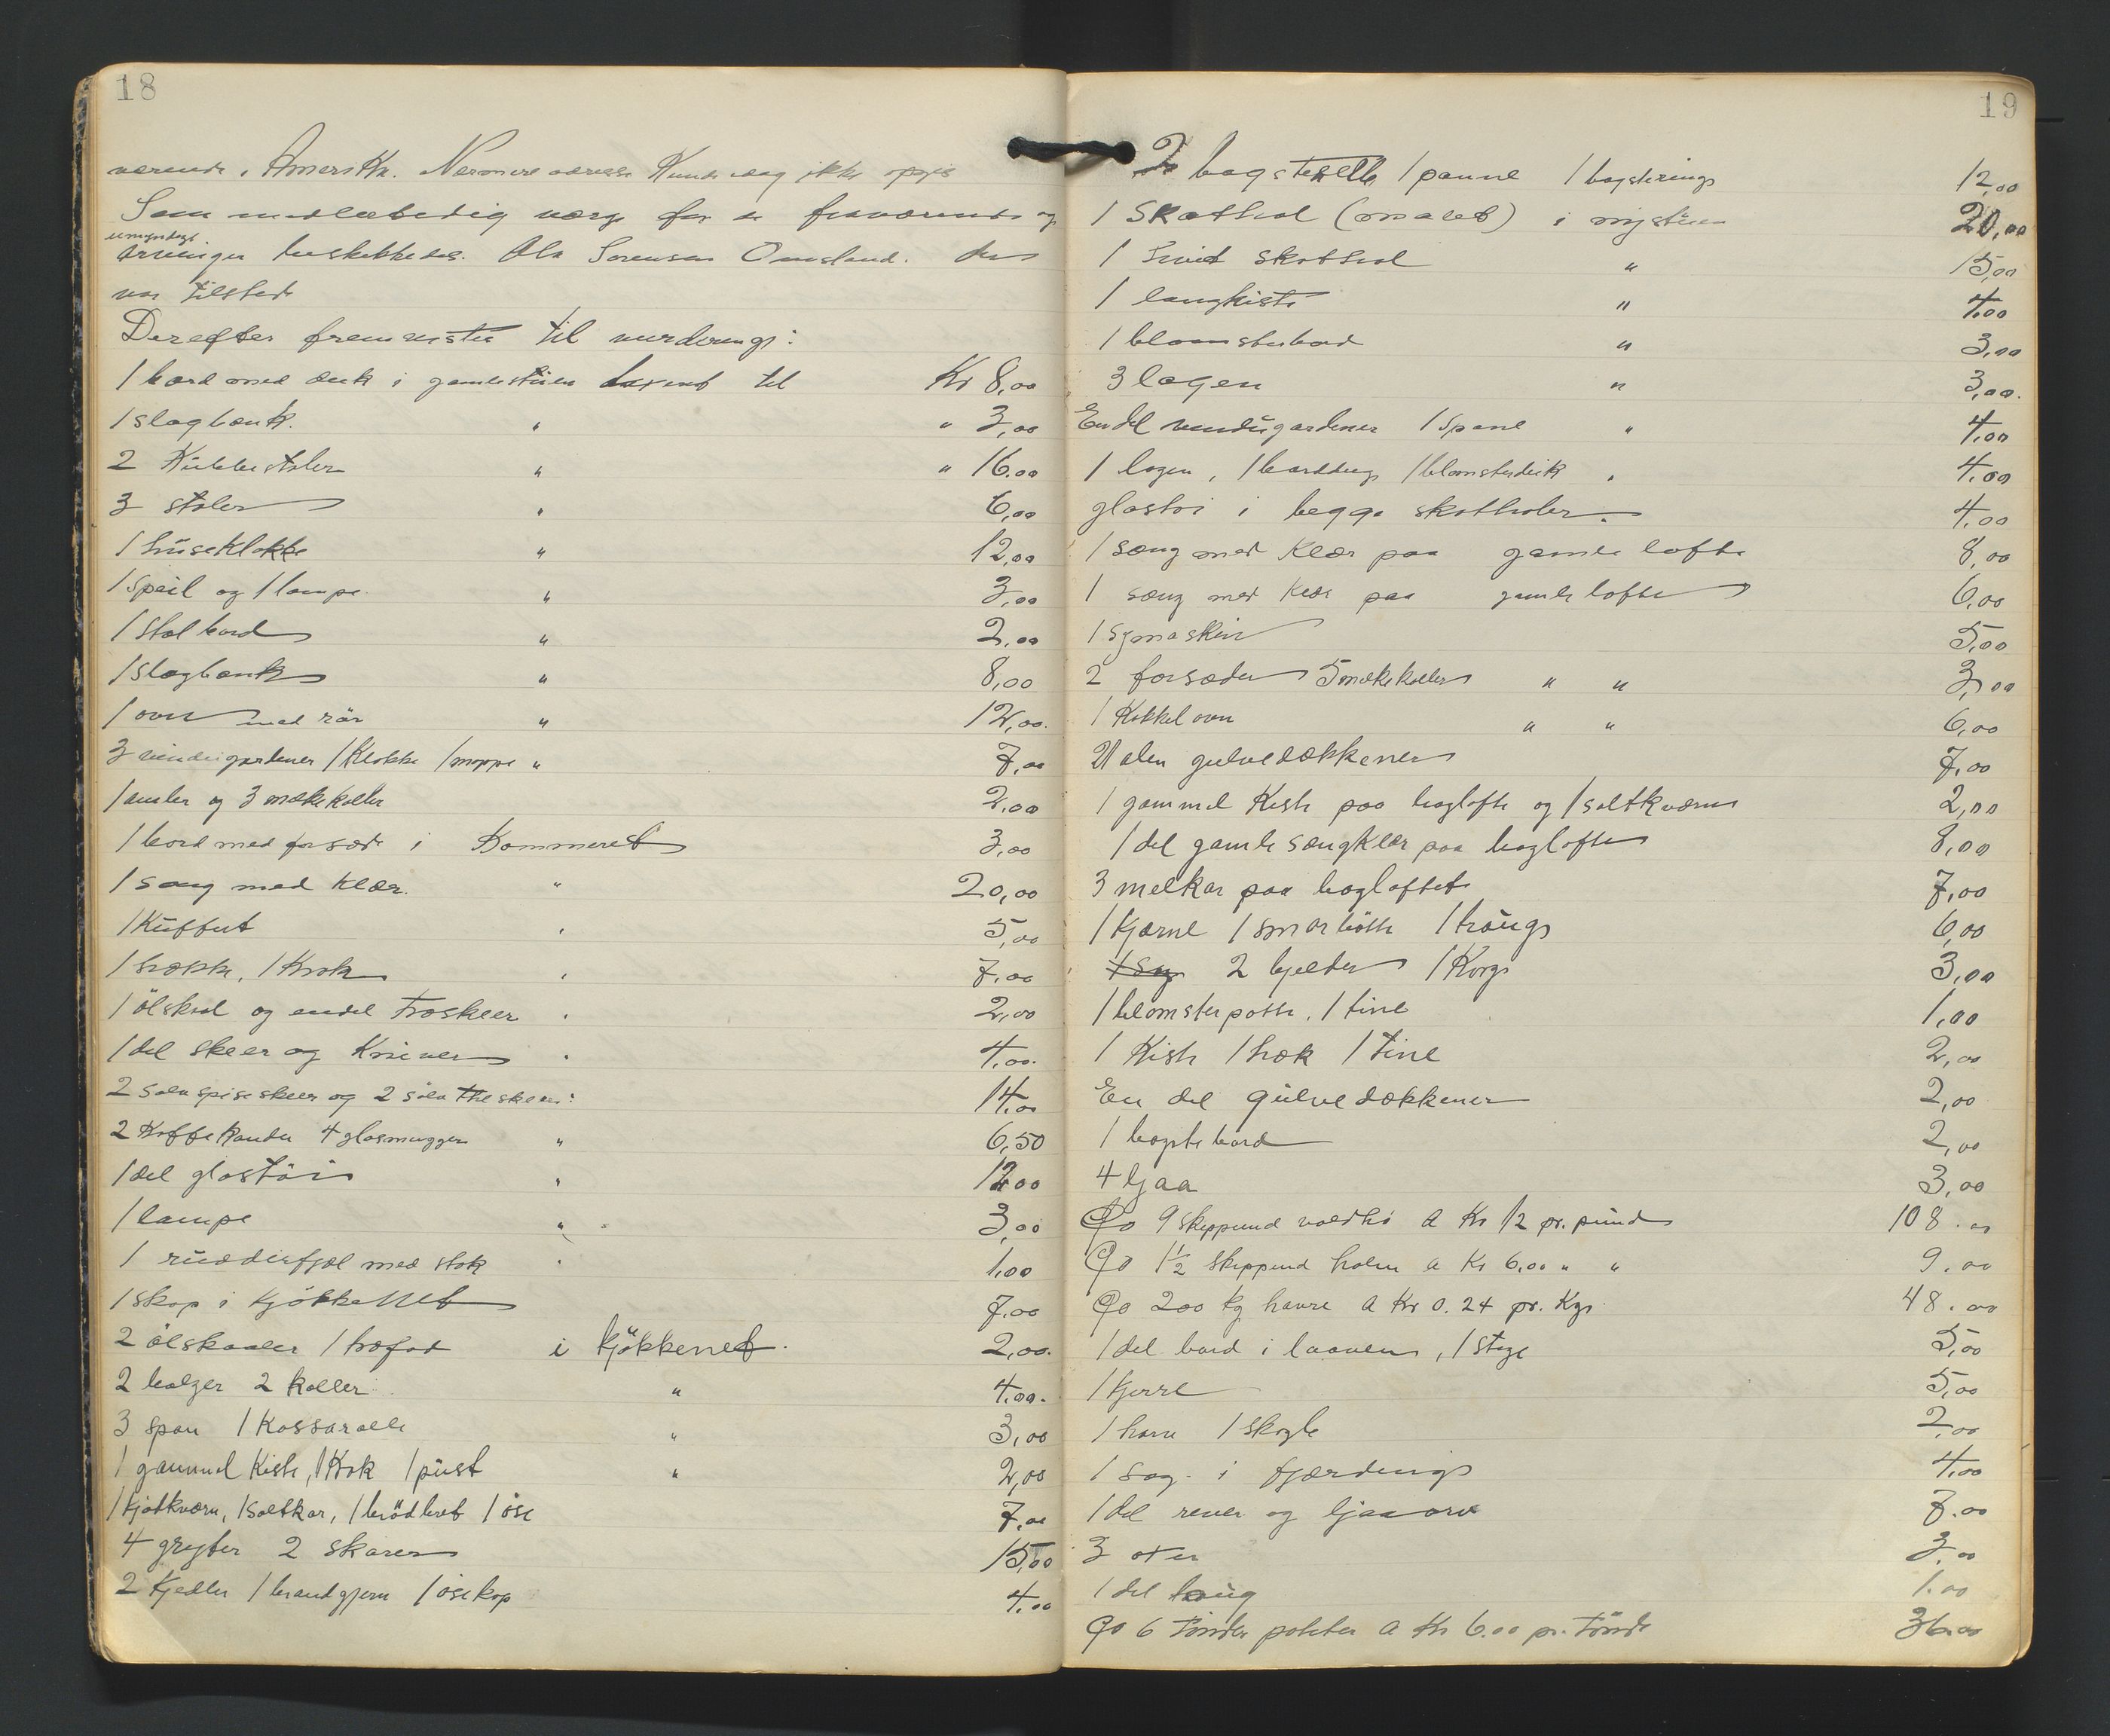 18
værende i Amerika. Nærmere adresse kunde dag ikke opgis
Som midlertidig verge for de fraværende og
umyndige
arvinger beskikkedes. Ola Sorensen Omsland. der
var tilstede
Derefter fremvistes til vurdering:
1 bord med duk i gamlestuen taxert til Kr 8,00
1 slagbænk. " " 3,00
2 Kubbestoler " " 16.00
3 stoler " 6,00
1 huseklokke " 12,00
1 speil og 1 lampe. " 3,00
1 stol bord " 2,00
1 slagbænk " 8,00
1 ovn med rör " 12,00.
3 vindugardener 1 Klokke 1 moppe " 7,00
1 ambar og 3 melkekoller 2,00
1 bord med forsæde i Kammeret 3,00
1 sæng med klær. " 20,00
1 Kuffert " 5,00
1 hække, 1 Krak " 7,00
1 ölskaal og endel træskeer " 2,00
1 del skeer og Kniver " 4,00.
2 sölv spiseskeer og 2 sölv theskeer: 14,00
2 Kaffekander 4 glasmugger " 6,50
1 del glastöi " 12,00
1 lampe " 3,00
1 rullefjøl med stok " 1,00
1 skap i kjökkenet 7,00
2 ölskaaler 1 træfad i kjökkenet. 2,00.
2 balger 2 koller " 4,00.
3 span 1 Kassarolle " 3,00
1 gammel Kiste, 1 Krak 1 pust " 2,00
1 kjötkværn, 1 saltkar, 1 brödbret 1 öse 7,00
4 gryter 2 skarer 15,00
2 Kjedler 1 brandjern 1 ösekop 4,00
19
2 bagstehelle 1 panne 1 bagstering 12,00
1 Skathol (malet) i nystuen 20,00
1 hvid skathol " 15,00
1 langkiste " 4,00
1 blomsterbord " 3,00
3 lagen " 3,00.
Endel vindugardener 1 spane " 4,00
1 lagen, 1 borddug 1 blomsterduk " 4,00
glastöi i begge skatholer. 4,00
1 sæng med Klær paa gamle lofte 8,00
1 sæng med klær paa gamle lofte 6,00
1 symaskin 5,00
2 forsæder 5 melkekoller " " 3,00
1 Kakkelovn " " 6,00
21 alen gulvedækkener 7,00
1 gammel Kiste paa bagloft og 1 saltkværn 2,00
1 del gamle sængklær paa bagloftet 8,00
3 melkar paa bagloftet 7,00
1 kjærne 1 smörbötte 1 traug 6,00
1 Sag 2 bjelder 1 Korg 3,00
1 blomsterpotte, 1 tine 1,00
1 Kiste 1 hak 1 tine 2,00
En del gulvedækkener 2,00
1 bagstebord 2,00
4 ljaa 3,00
Ca 9 skippund voldhö a Kr 12 pr. pund 108.00
Ca 1 1/2 skippund halm a Kr 6.00 " " 9.00
Ca 200 kg havre a Kr 0.24 pr. Kg. 48.00
1 del bord i laaven, 1 stige 5,00
1 kjerre 5,00
1 harv 1 skogle 2,00
1 sag i fjærding 4,00
1 del river og ljaaorv 7.00
3 öxer 3,00
1 del haug 1.00
Ca 6 tönder poteter a Kr 6.00 pr. tönde 36.00